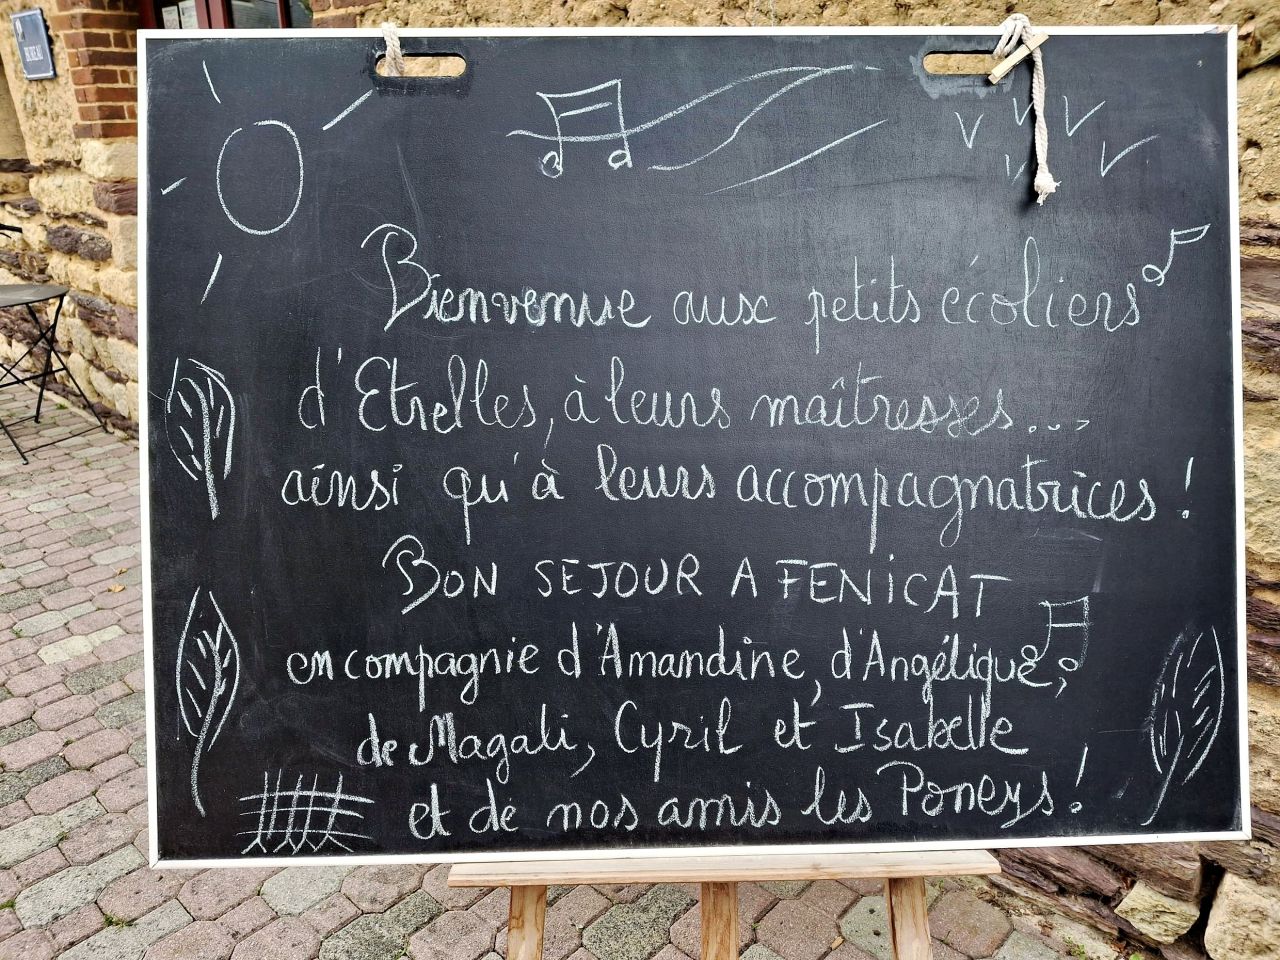 BUREAU
Bienvenue aux petits écoliers
d'Etrelles, à leurs maîtresses...
ainsi qu'à leurs accompagnatrices !
BON SEJOUR A FENiCAT
en compagnie d'Amandine, d'Angélique,
de Magali, Cyril et Isabelle
et de nos amis les Poneys !